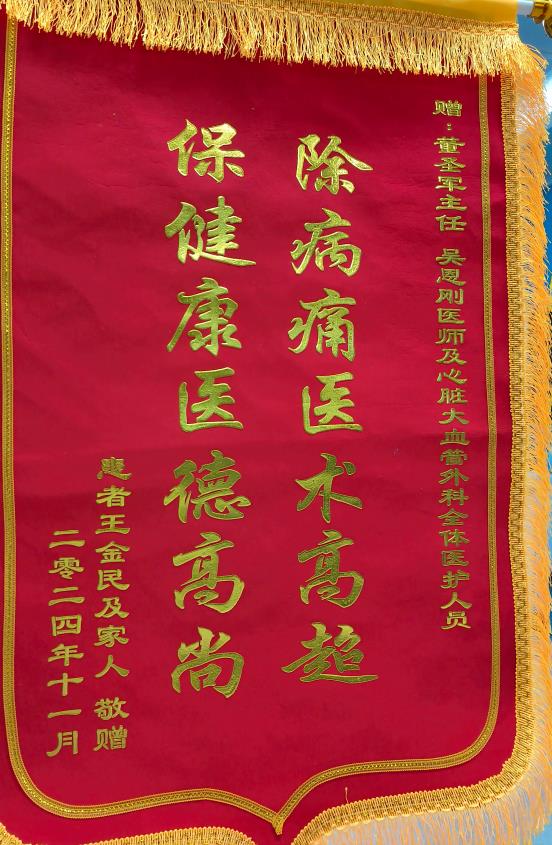 赠：董圣军主任 吴恩刚医师及心脏大血管外科全体医护人员
除病痛医术高超
保健康医德高尚
患者王金民及家人 敬赠
二零二四年十一月